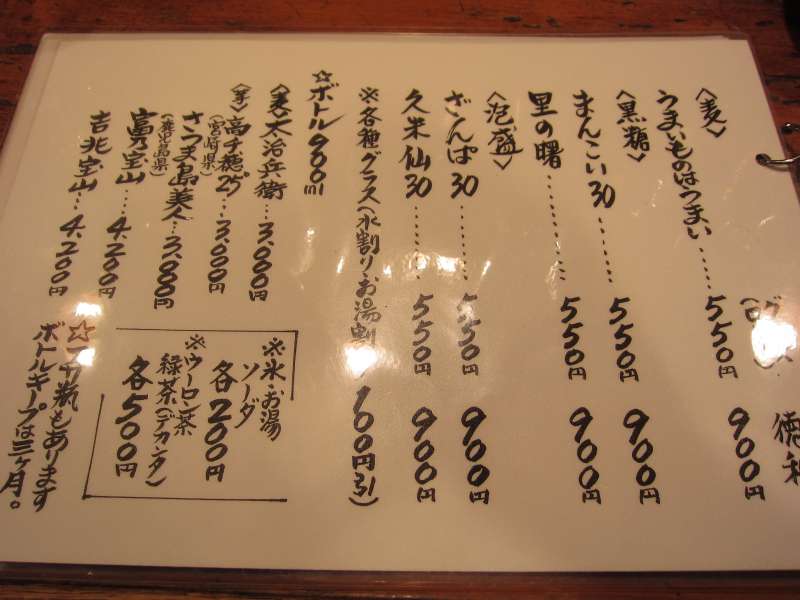 徳利
<麦>
うまいものはうまい……550円 900円
<黒糖>
まんこい30……550円 900円
里の曙……550円 900円
<泡盛>
ざんぱ30……550円 900円
久米仙30……550円 900円
※各種グラス(水割り・お湯割 100円引)
☆ボトル900ml
<麦>太治兵衛…3,000円
<芋>高千穂25°…3,000円
(宮崎県)
さつま島美人…3,000円
(鹿児島県)
富乃宝山…4,200円
吉兆宝山…4,200円
※氷・お湯
ソーダ
各200円
※ウーロン茶
緑茶(デカンタ)
各500円
☆一升瓶もあります
ボトルキープは三ヶ月。